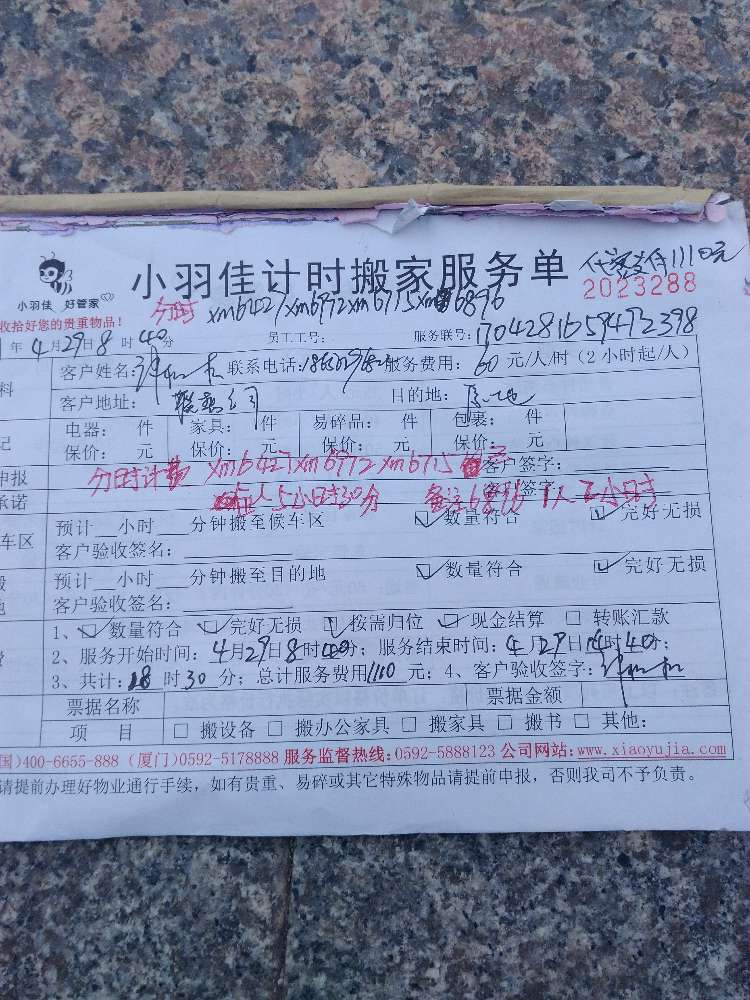 小羽佳计时搬家服务单
小羽佳 好管家
2023288
分时 xm6427xm6972xm6715xm6896
收拾好您的贵重物品!
年4月29日8时40分 员工工号: 服务联号:1704281659472398
客户姓名: 联系电话: 服务费用:60元/人/时(2小时起/人)
客户地址: 目的地:
电器: 件 家具: 件 易碎品: 件 包裹: 件
保价: 元 保价: 元 保价: 元 保价: 元
申报 分时计费 xm6427xm6972xm6715 客户签字:
承诺 人5小时30分 备注6896 1人2小时
车区 预计__小时___分钟搬至候车区 数量符合 完好无损
客户验收签名:
预计__小时___分钟搬至目的地 数量符合 完好无损
客户验收签名:
1、数量符合 完好无损 按需归位 现金结算 转账汇款
2、服务开始时间:4月29日8时40分;服务结束时间:4月29日14时40分;
3、共计:18时30分;总计服务费用1110元;4、客户验收签字:
票据名称 票据金额
项 目 搬设备 搬办公家具 搬家具 搬书 其他:
国)400-6655-888 (厦门)0592-5178888 服务监督热线:0592-5888123 公司网站:www.xiaoyujia.com
请提前办理好物业通行手续,如有贵重、易碎或其它特殊物品请提前申报,否则我司不予负责。